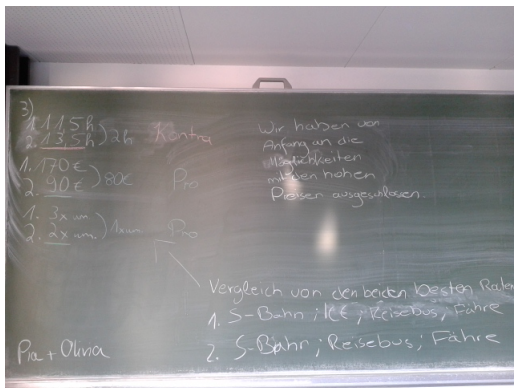 3)
1. 11,5h
2. 13,5h ) 2h Kontra
1. 170€
2. 90€ ) 80€ Pro
1. 3x um
2. 2x um ) 1x um Pro
Wir haben von
Anfang an die
Möglichkeiten
mit den hohen
Preisen ausgeschlossen.
Vergleich von den beiden besten
1. S-Bahn ; ICE ; Reisebus ; Fähre
2. S-Bahn ; Reisebus ; Fähre
Pia + Olivia